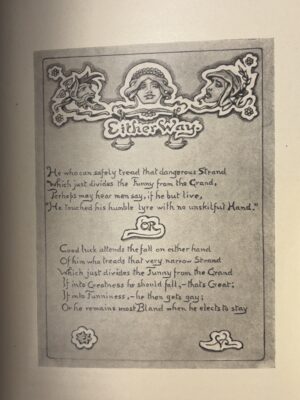 Either Way.
He who can safely tread that dangerous Strand
Which just divides the Funny from the Grand,
Perhaps may hear men say, if he but live,
"He touched his humble Lyre with no unskilful Hand."
OR
Good luck attends the fall on either hand
Of him who treads that very narrow Strand
Which just divides the Funny from the Grand
If into Greatness he should fall,—that's Great;
If into Funniness,—he then gets gay;
Or he remains most Bland when he elects to stay